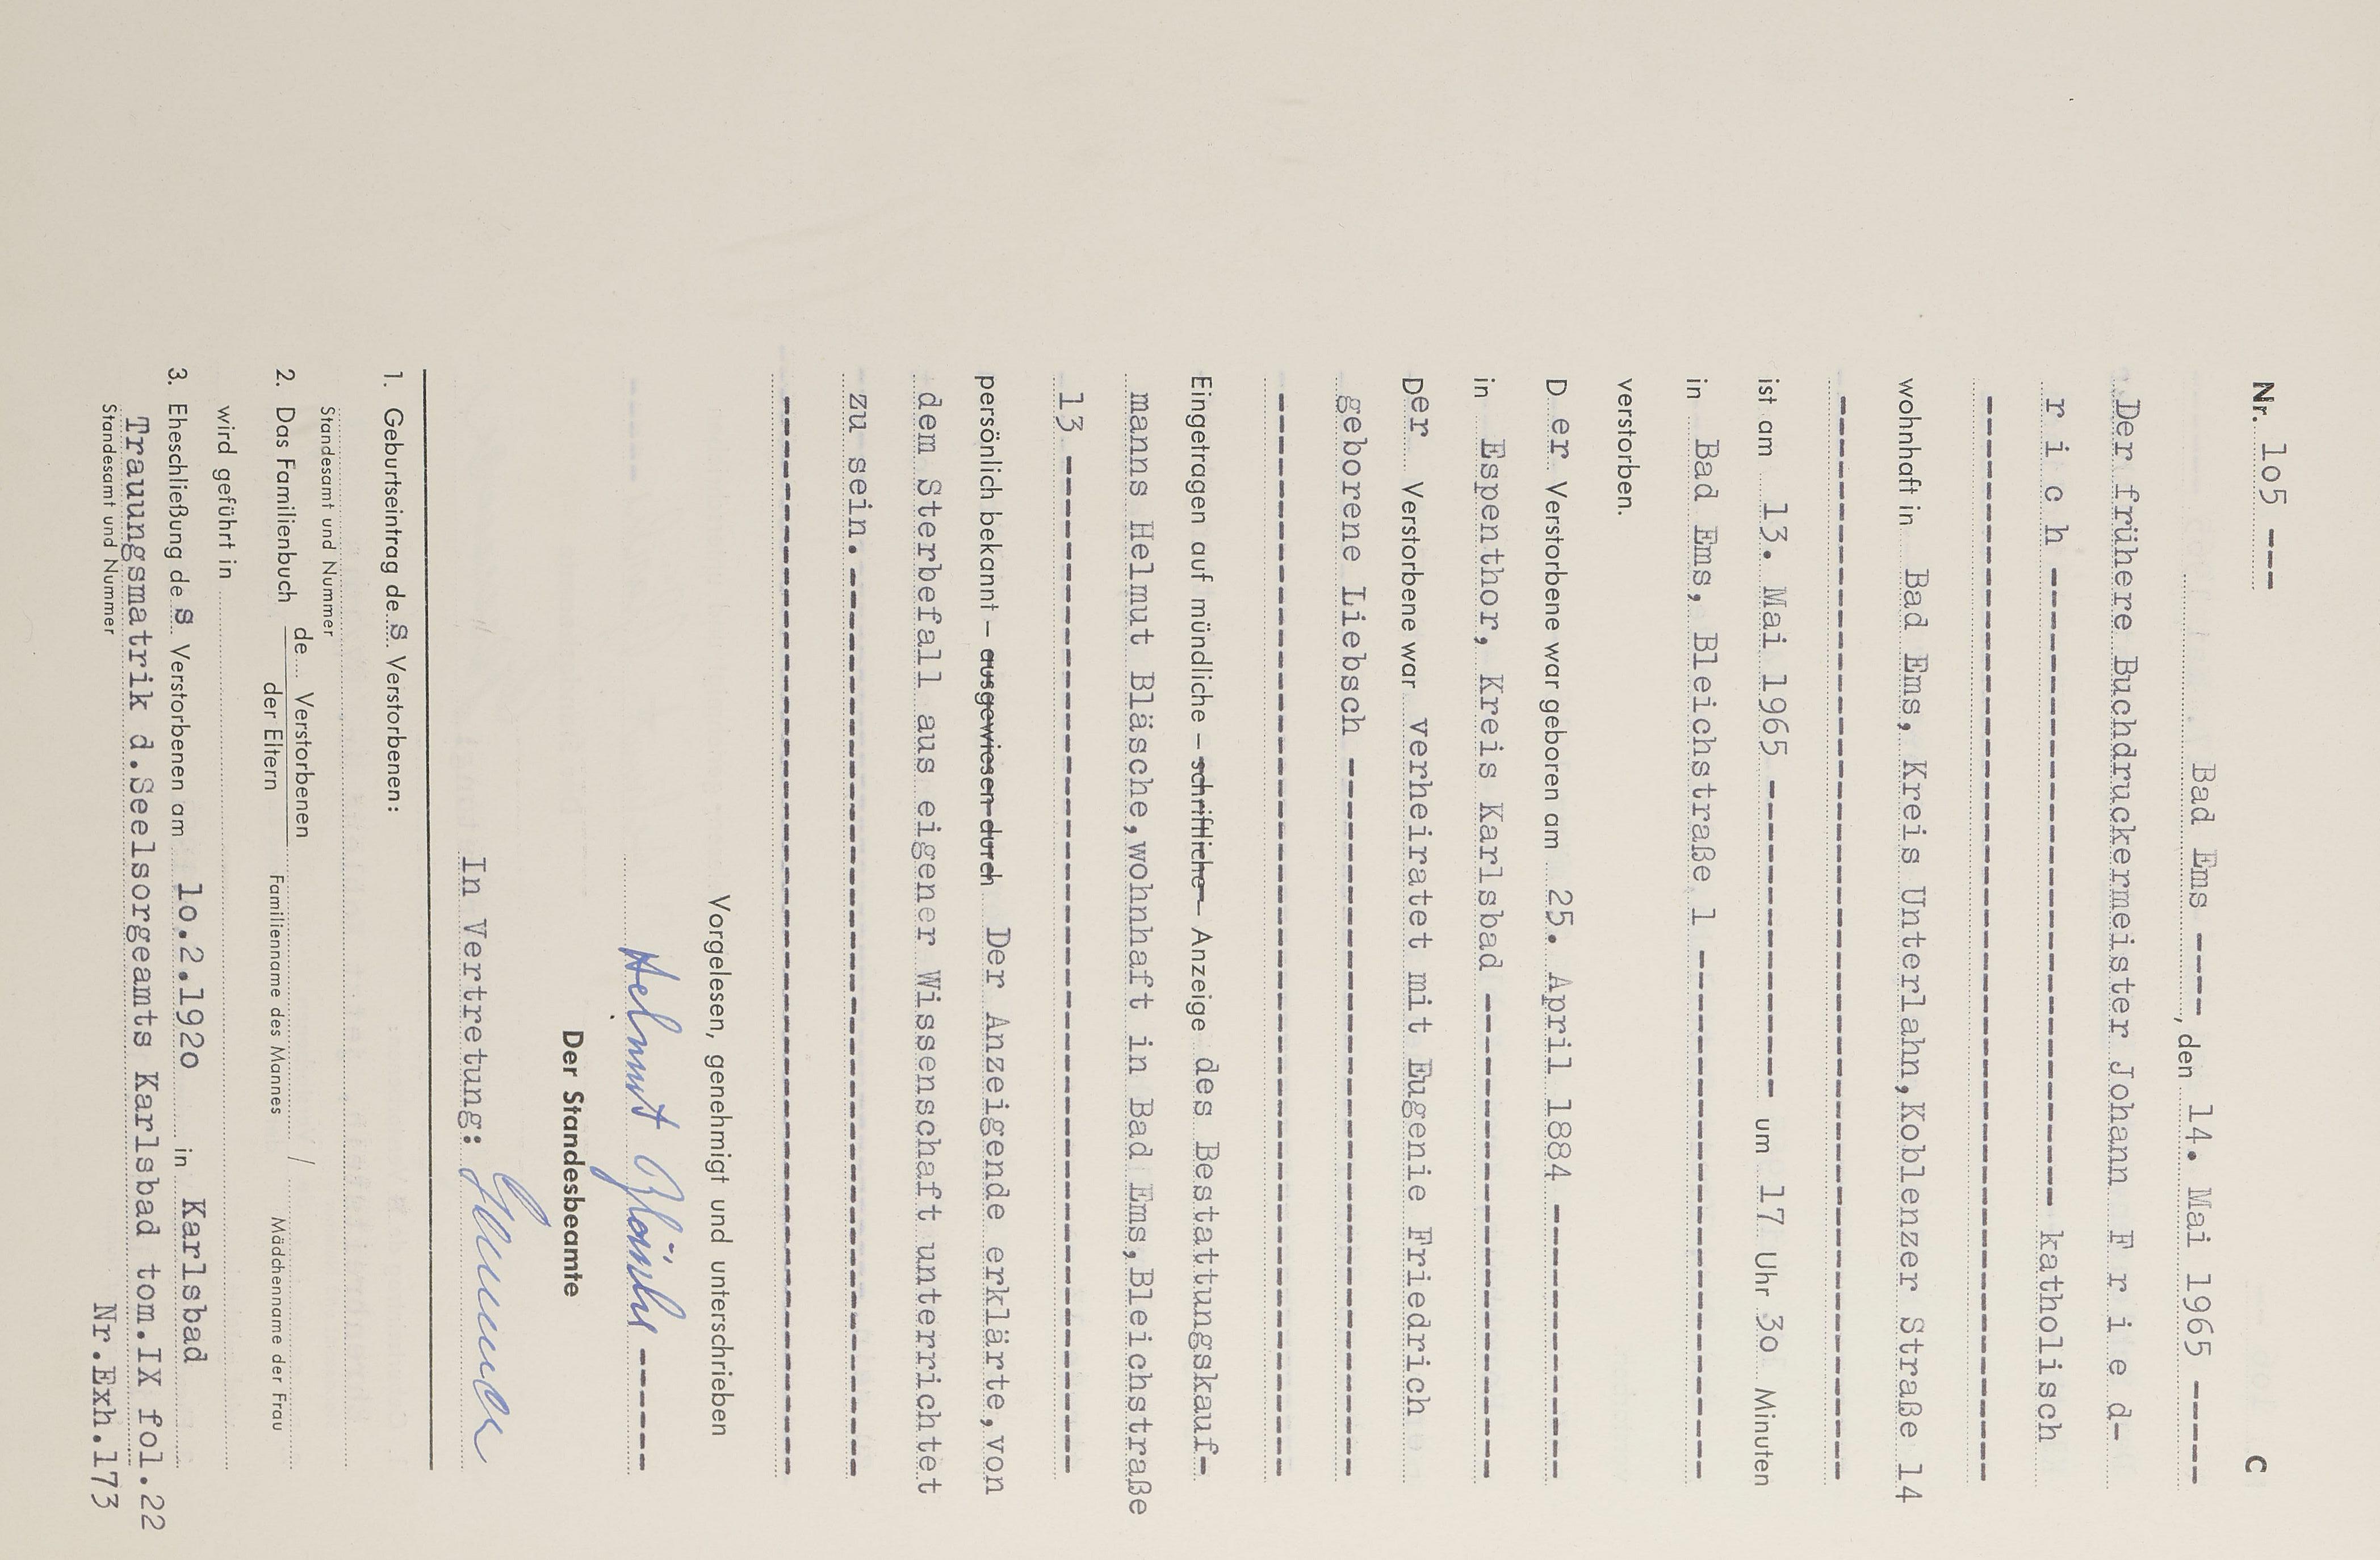 Nr. 1o5 ---
C
Bad Ems ----, den 14. Mai 1965 -----
Der frühere Buchdruckermeister Johann F r i e d-
r i c h ------------------------------ katholisch
--------------------------------------------------
wohnhaft in Bad Ems, Kreis Unterlahn,Koblenzer Straße 14
--------------------------------------------------
ist am 13. Mai 1965 --------------- um 17 Uhr 3o Minuten
in Bad Ems, Bleichstraße 1 -------------------------
verstorben.
D er Verstorbene war geboren am 25. April 1884 -------------
in Espenthor, Kreis Karlsbad -----------------------
Der Verstorbene war verheiratet mit Eugenie Friedrich
geborene Liebsch ----------------------------------
--------------------------------------------------
Eingetragen auf mündliche – schriftliche – Anzeige des Bestattungskauf-
manns Helmut Bläsche,wohnhaft in Bad Ems,Bleichstraße
13 -----------------------------------------------
persönlich bekannt – ausgewiesen durch Der Anzeigende erklärte,von
dem Sterbefall aus eigener Wissenschaft unterrichtet
zu sein.------------------------------------------
--------------------------------------------------
Vorgelesen, genehmigt und unterschrieben
Helmut Bläsche ------
Der Standesbeamte
In Vertretung:
1. Geburtseintrag de s Verstorbenen:
Standesamt und Nummer
2. Das Familienbuch de Verstorbenen
der Eltern
Familienname des Mannes / Mädchenname der Frau
wird geführt in
3. Eheschließung de s Verstorbenen am 1o.2.192o in Karlsbad
Trauungsmatrik d.Seelsorgeamts Karlsbad tom.IX fol.22
Standesamt und Nummer
Nr.Exh.173